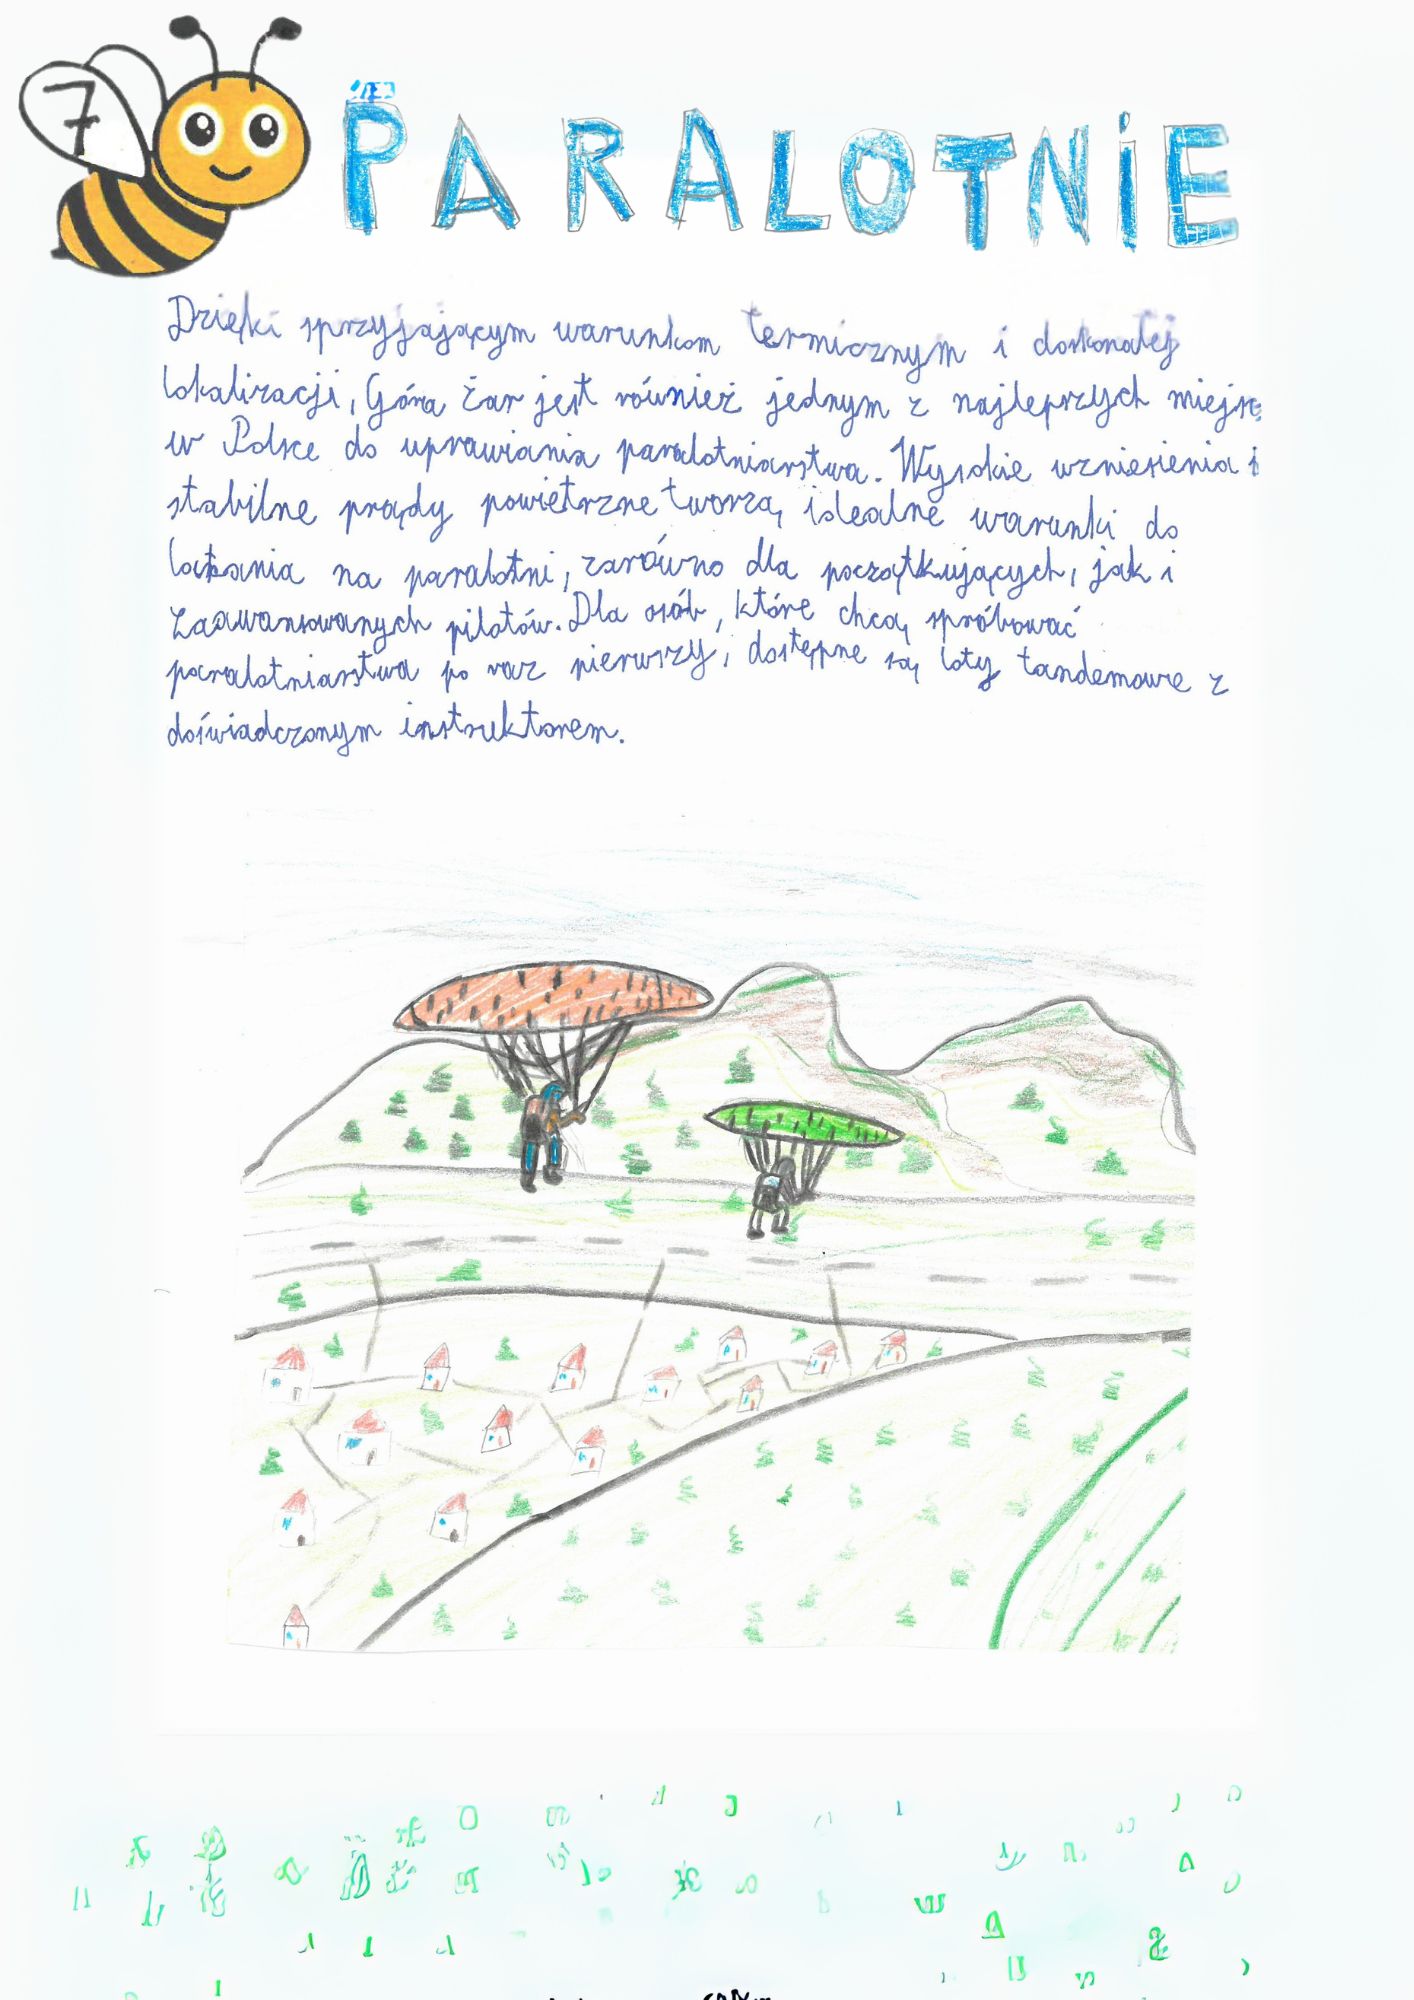 7
PARALOTNiE
Dzięki sprzyjającym warunkom termicznym i doskonałej
lokalizacji, Góra Żar jest również jednym z najlepszych miejsc
w Polsce do uprawiania paralotniarstwa. Wysokie wzniesienia i
stabilne prądy powietrzne tworzą idealne warunki do
latania na paralotni, zarówno dla początkujących, jak i
zaawansowanych pilotów. Dla osób, które chcą spróbować
paralotniarstwa po raz pierwszy, dostępne są loty tandemowe z
doświadczonym instruktorem.